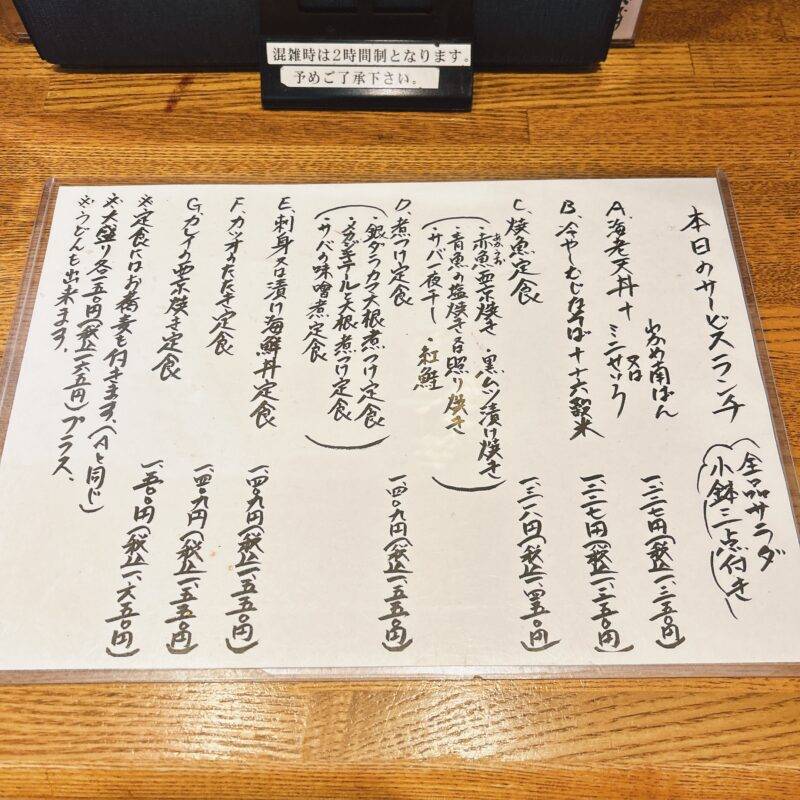 混雑時は2時間制となります。
予めご了承下さい。
本日のサービスランチ
(全品サラダ
小鉢二点付き)
わかめ南ばん
又は
A、海老天丼+ミニせいろ 一、二二七円(税込一、三五〇円)
B、冷やしむじなそば+十六穀米 一、二二七円(税込一、三五〇円)
C、焼魚定食 一、三一八円(税込一、四五〇円)
・赤魚西京焼き 黒ムツ漬け焼き
・青魚の塩焼き又は照り焼き
・サバ一夜干し ・紅鮭
D、煮つけ定食 一、四〇九円(税込一、五五〇円)
・銀ダラカマ大根煮つけ定食
・メカジキテールと大根煮つけ定食
・サバの味噌煮定食
E、刺身又は漬け海鮮丼定食
F、カツオのたたき定食 一、四〇九円(税込一、五五〇円)
G、カレイの西京焼き定食 一、四〇九円(税込一、五五〇円)
一、五〇〇円(税込一、六五〇円)
※定食にはお蕎麦も付きます、(Aと同じ)
※大盛り各一五〇円(税込一六五円)プラス、
※うどんも出来ます。